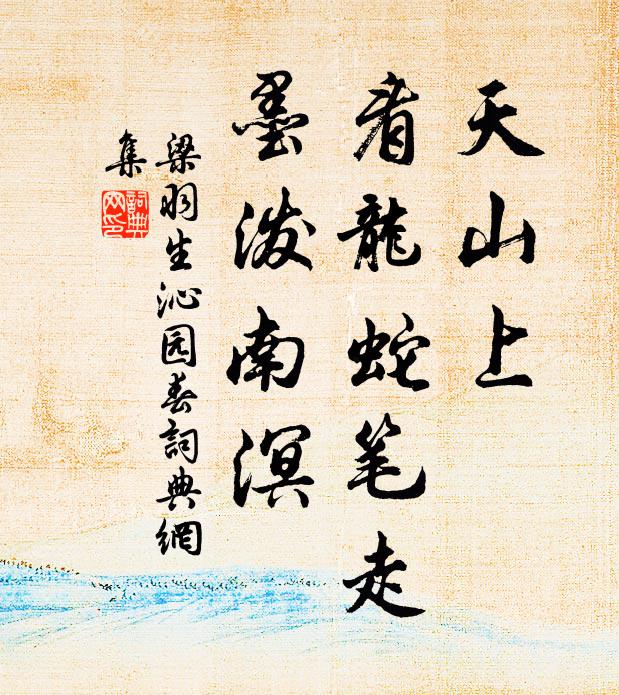 天山上
看龍蛇笔走
墨泼南溟
梁羽生沁园春詞典網
集
詞典
网印